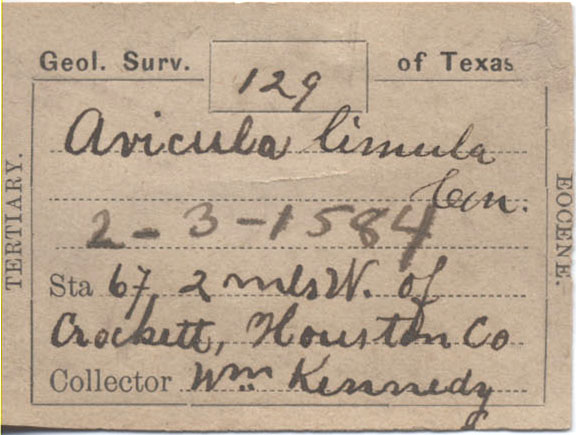 Geol. Surv. 129 of Texas
Avicula limula
Con.
2-3-1584
Sta 67, 2 mls W. of
Crockett, Houston Co
Collector Wm Kennedy
TERTIARY.
EOCENE.